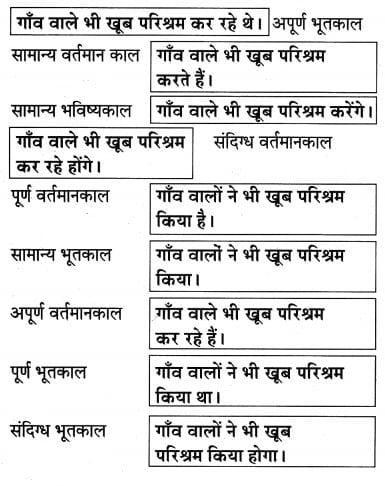 गाँव वाले भी खूब परिश्रम कर रहे थे। अपूर्ण भूतकाल
सामान्य वर्तमान काल गाँव वाले भी खूब परिश्रम
करते हैं।
सामान्य भविष्यकाल गाँव वाले भी खूब परिश्रम करेंगे।
गाँव वाले भी खूब परिश्रम संदिग्ध वर्तमानकाल
कर रहे होंगे।
पूर्ण वर्तमानकाल गाँव वालों ने भी खूब परिश्रम
किया है।
सामान्य भूतकाल गाँव वालों ने भी खूब परिश्रम
किया।
अपूर्ण वर्तमानकाल गाँव वाले भी खूब परिश्रम
कर रहे हैं।
पूर्ण भूतकाल गाँव वालों ने भी खूब परिश्रम
किया था।
संदिग्ध भूतकाल गाँव वालों ने भी खूब
परिश्रम किया होगा।